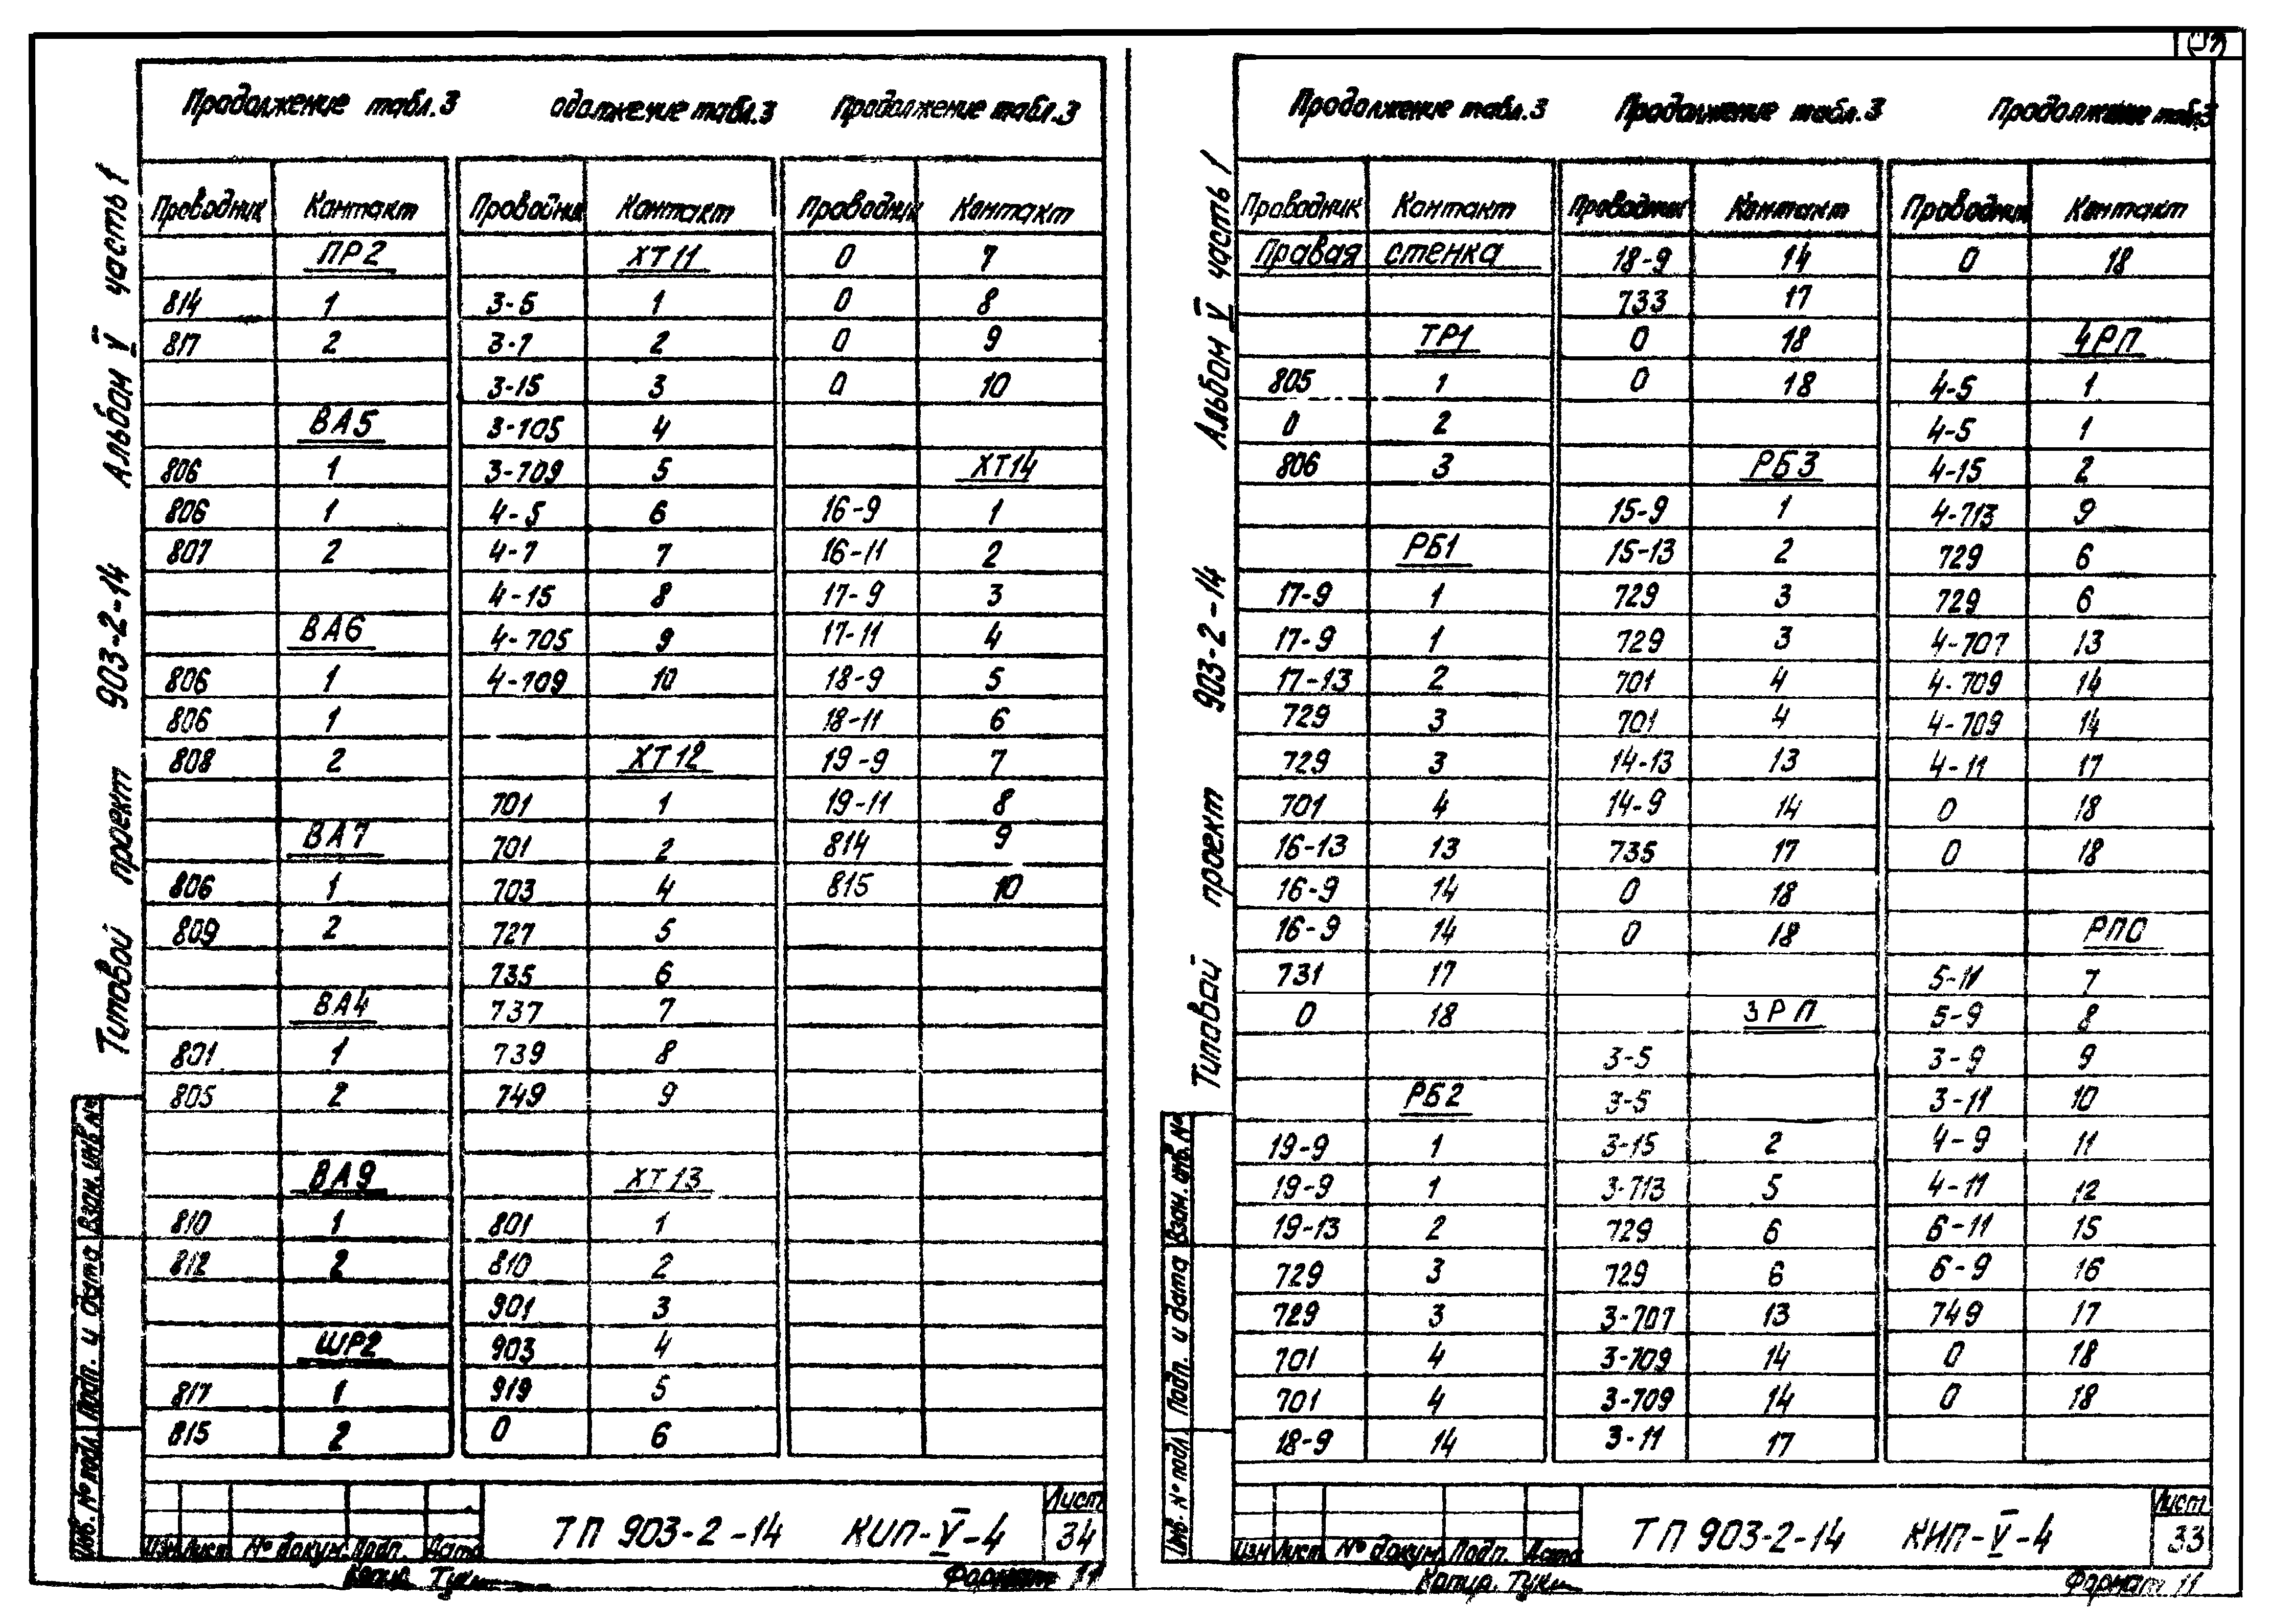 Продолжение табл.3 одолжение табл.3 Продолжение табл.3
Проводник Контакт Проводник Контакт Проводник Контакт
ПР2 ХТ11 0 7
814 1 3-5 1 0 8
817 2 3-7 2 0 9
3-15 3 0 10
ВА5 3-705 4
806 1 3-709 5 ХТ14
806 1 4-5 6 16-9 1
807 2 4-7 7 16-11 2
4-15 8 17-9 3
ВА6 4-705 9 17-11 4
806 1 4-709 10 18-9 5
806 1 18-11 6
808 2 ХТ12 19-9 7
701 1 19-11 8
ВА7 701 2 814 9
806 1 703 4 815 10
809 2 727 5
735 6
ВА4 737 7
801 1 739 8
805 2 749 9
ВА9 ХТ13
810 1 801 1
812 2 810 2
901 3
ШР2 903 4
817 1 919 5
815 2 0 6
Типовой проект 903-2-14 Альбом V часть 1
Инв. № подл. Подп. и дата Взам. инв. №
Изм Лист № докум. Подп. Дата
ТП 903-2-14 КИП-V-4
Лист
34
Копир. Тук
Формат 11
Продолжение табл.3 Продолжение табл.3 Продолжение табл.3
Проводник Контакт Проводник Контакт Проводник Контакт
Правая стенка 18-9 14 0 18
733 17
ТР1 0 18 4РП
805 1 0 18 4-5 1
0 2 4-5 1
806 3 РБ3 4-15 2
15-9 1 4-713 9
РБ1 15-13 2 729 6
17-9 1 729 3 729 6
17-9 1 729 3 4-707 13
17-13 2 701 4 4-709 14
729 3 701 4 4-709 14
729 3 14-13 13 4-11 17
701 4 14-9 14 0 18
16-13 13 735 17 0 18
16-9 14 0 18
16-9 14 0 18 РПО
731 17 5-11 7
0 18 3РП 5-9 8
3-5 3-9 9
РБ2 3-5 3-11 10
19-9 1 3-15 2 4-9 11
19-9 1 3-713 5 4-11 12
19-13 2 729 6 6-11 15
729 3 729 6 6-9 16
729 3 3-707 13 749 17
701 4 3-709 14 0 18
701 4 3-709 14 0 18
18-9 14 3-11 17
Типовой проект 903-2-14 Альбом V часть 1
Инв. № подл. Подп. и дата Взам. инв. №
Изм Лист № докум. Подп. Дата
ТП 903-2-14 КИП-V-4
Лист
33
Копир. Тук
Формат 11